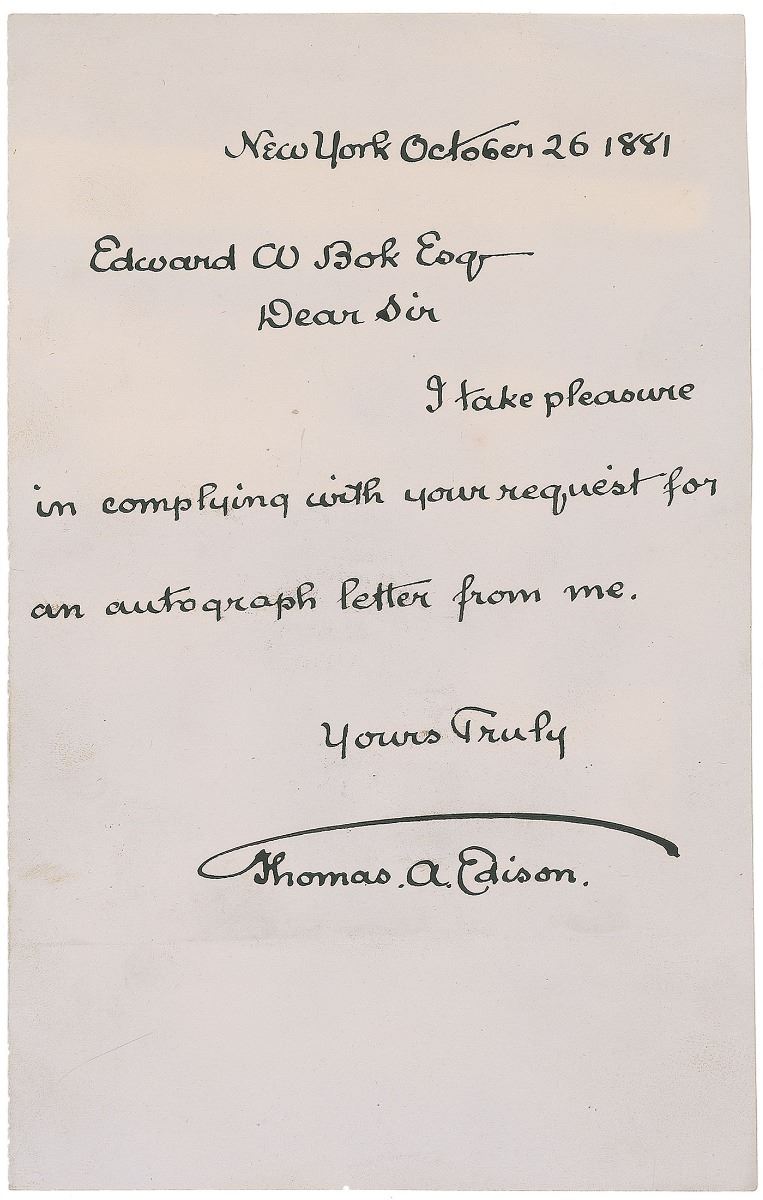 New York October 26 1881
Edward W Bok Esq
Dear Sir
I take pleasure
in complying with your request for
an autograph letter from me.
Yours Truly
Thomas. A. Edison.